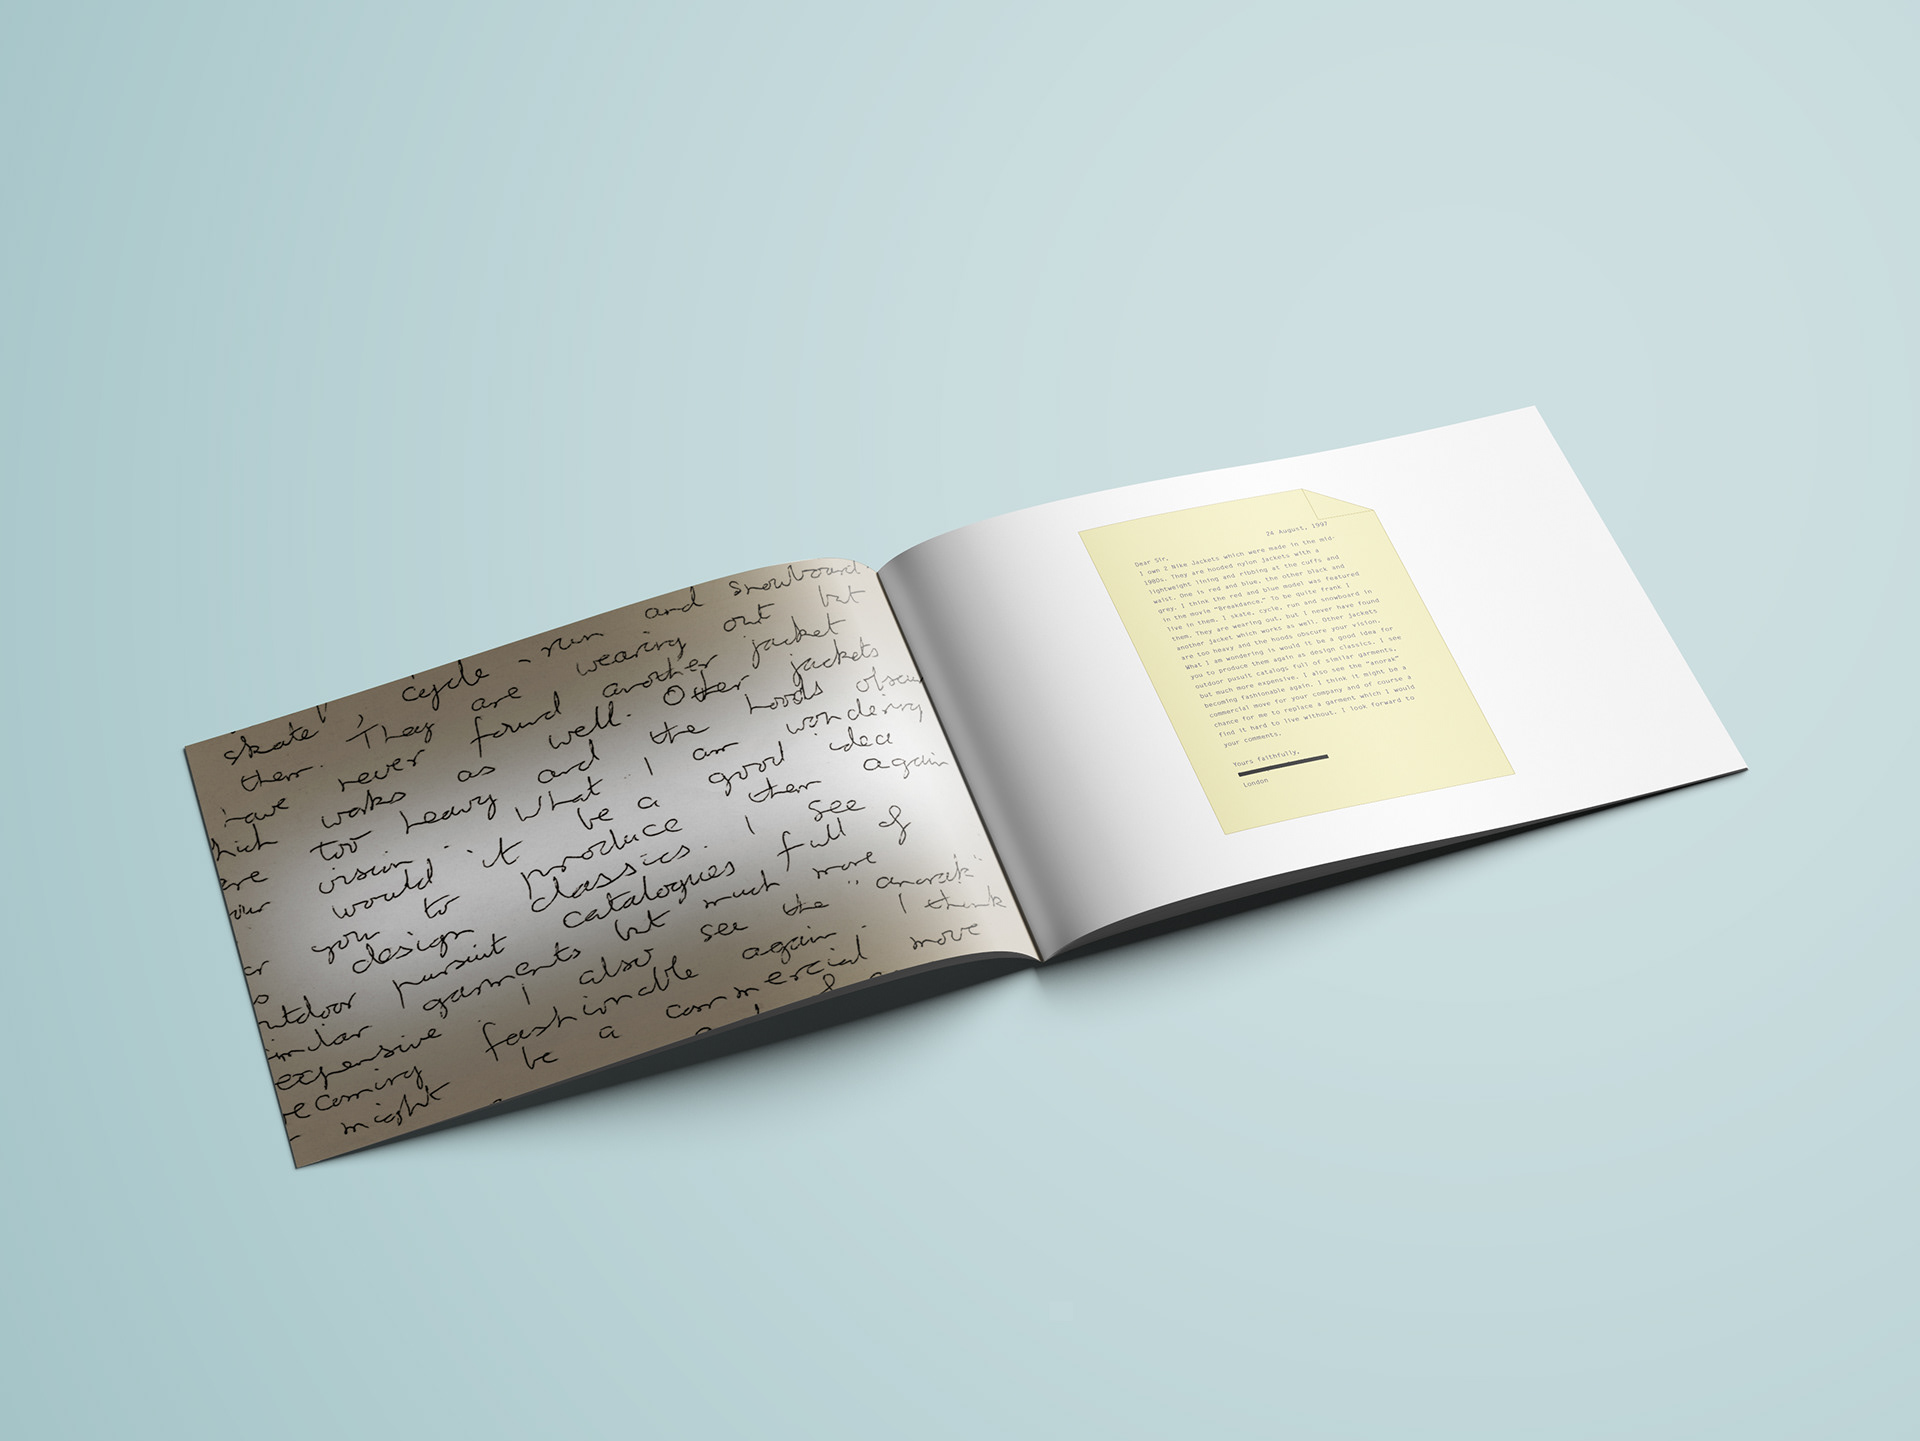 skate, cycle, run and snowboard
them. They are wearing out but
have never found another jacket
hich works as well. Other jackets
are too heavy and the hoods obscu
our vision. What I am wondering
would it be a good idea
or you to produce them again
s design classics. I see
utdoor pursuit catalogues full of
imilar garments but much more
expensive. I also see the "anorak"
ecoming fashionable again. I think
might be a commercial move
24 August, 1997
Dear Sir,
I own 2 Nike Jackets which were made in the mid-
1980s. They are hooded nylon jackets with a
lightweight lining and ribbing at the cuffs and
waist. One is red and blue, the other black and
grey. I think the red and blue model was featured
in the movie "Breakdance." To be quite frank I
live in them. I skate, cycle, run and snowboard in
them. They are wearing out, but I never have found
another jacket which works as well. Other jackets
are too heavy and the hoods obscure your vision.
What I am wondering is would it be a good idea for
you to produce them again as design classics. I see
outdoor pusuit catalogs full of similar garments,
but much more expensive. I also see the "anorak"
becoming fashionable again. I think it might be a
commercial move for your company and of course a
chance for me to replace a garment which I would
find it hard to live without. I look forward to
your comments.
Yours faithfully,
London